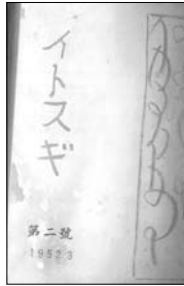 イトスギ
第二號
1952 3